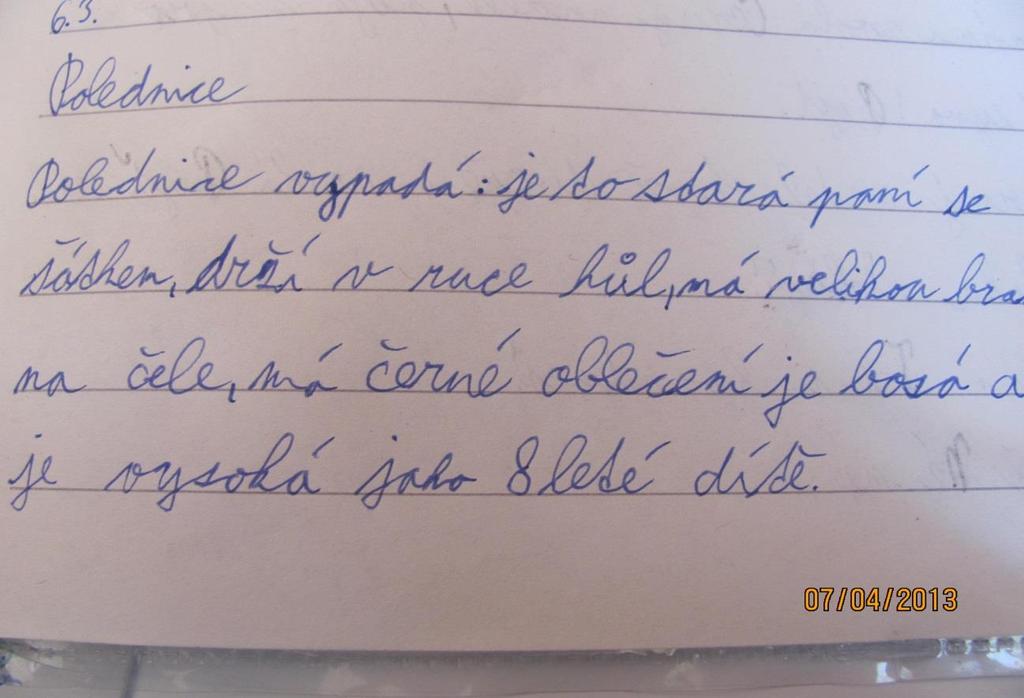 6.3.
Polednice
Polednice vypadá: je to stará paní se
šátkem, drží v ruce hůl, má velikou bra
na čele, má černé oblečení je bosá a
je vysoká jako 8 leté dítě.
07/04/2013